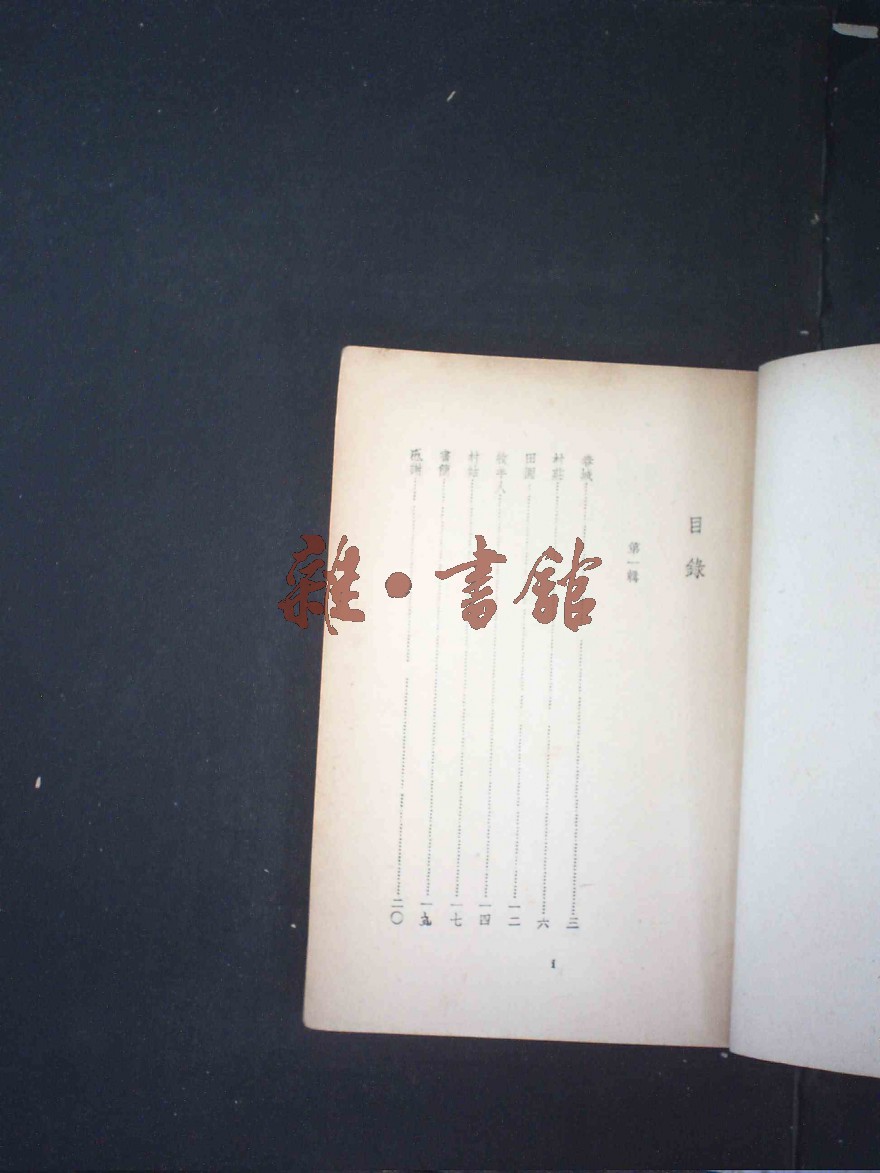 目錄
第一輯
春城……三
村莊……六
田園……一二
牧羊人……一四
村姑……一七
書簡……一九
二〇
1
雜·書館